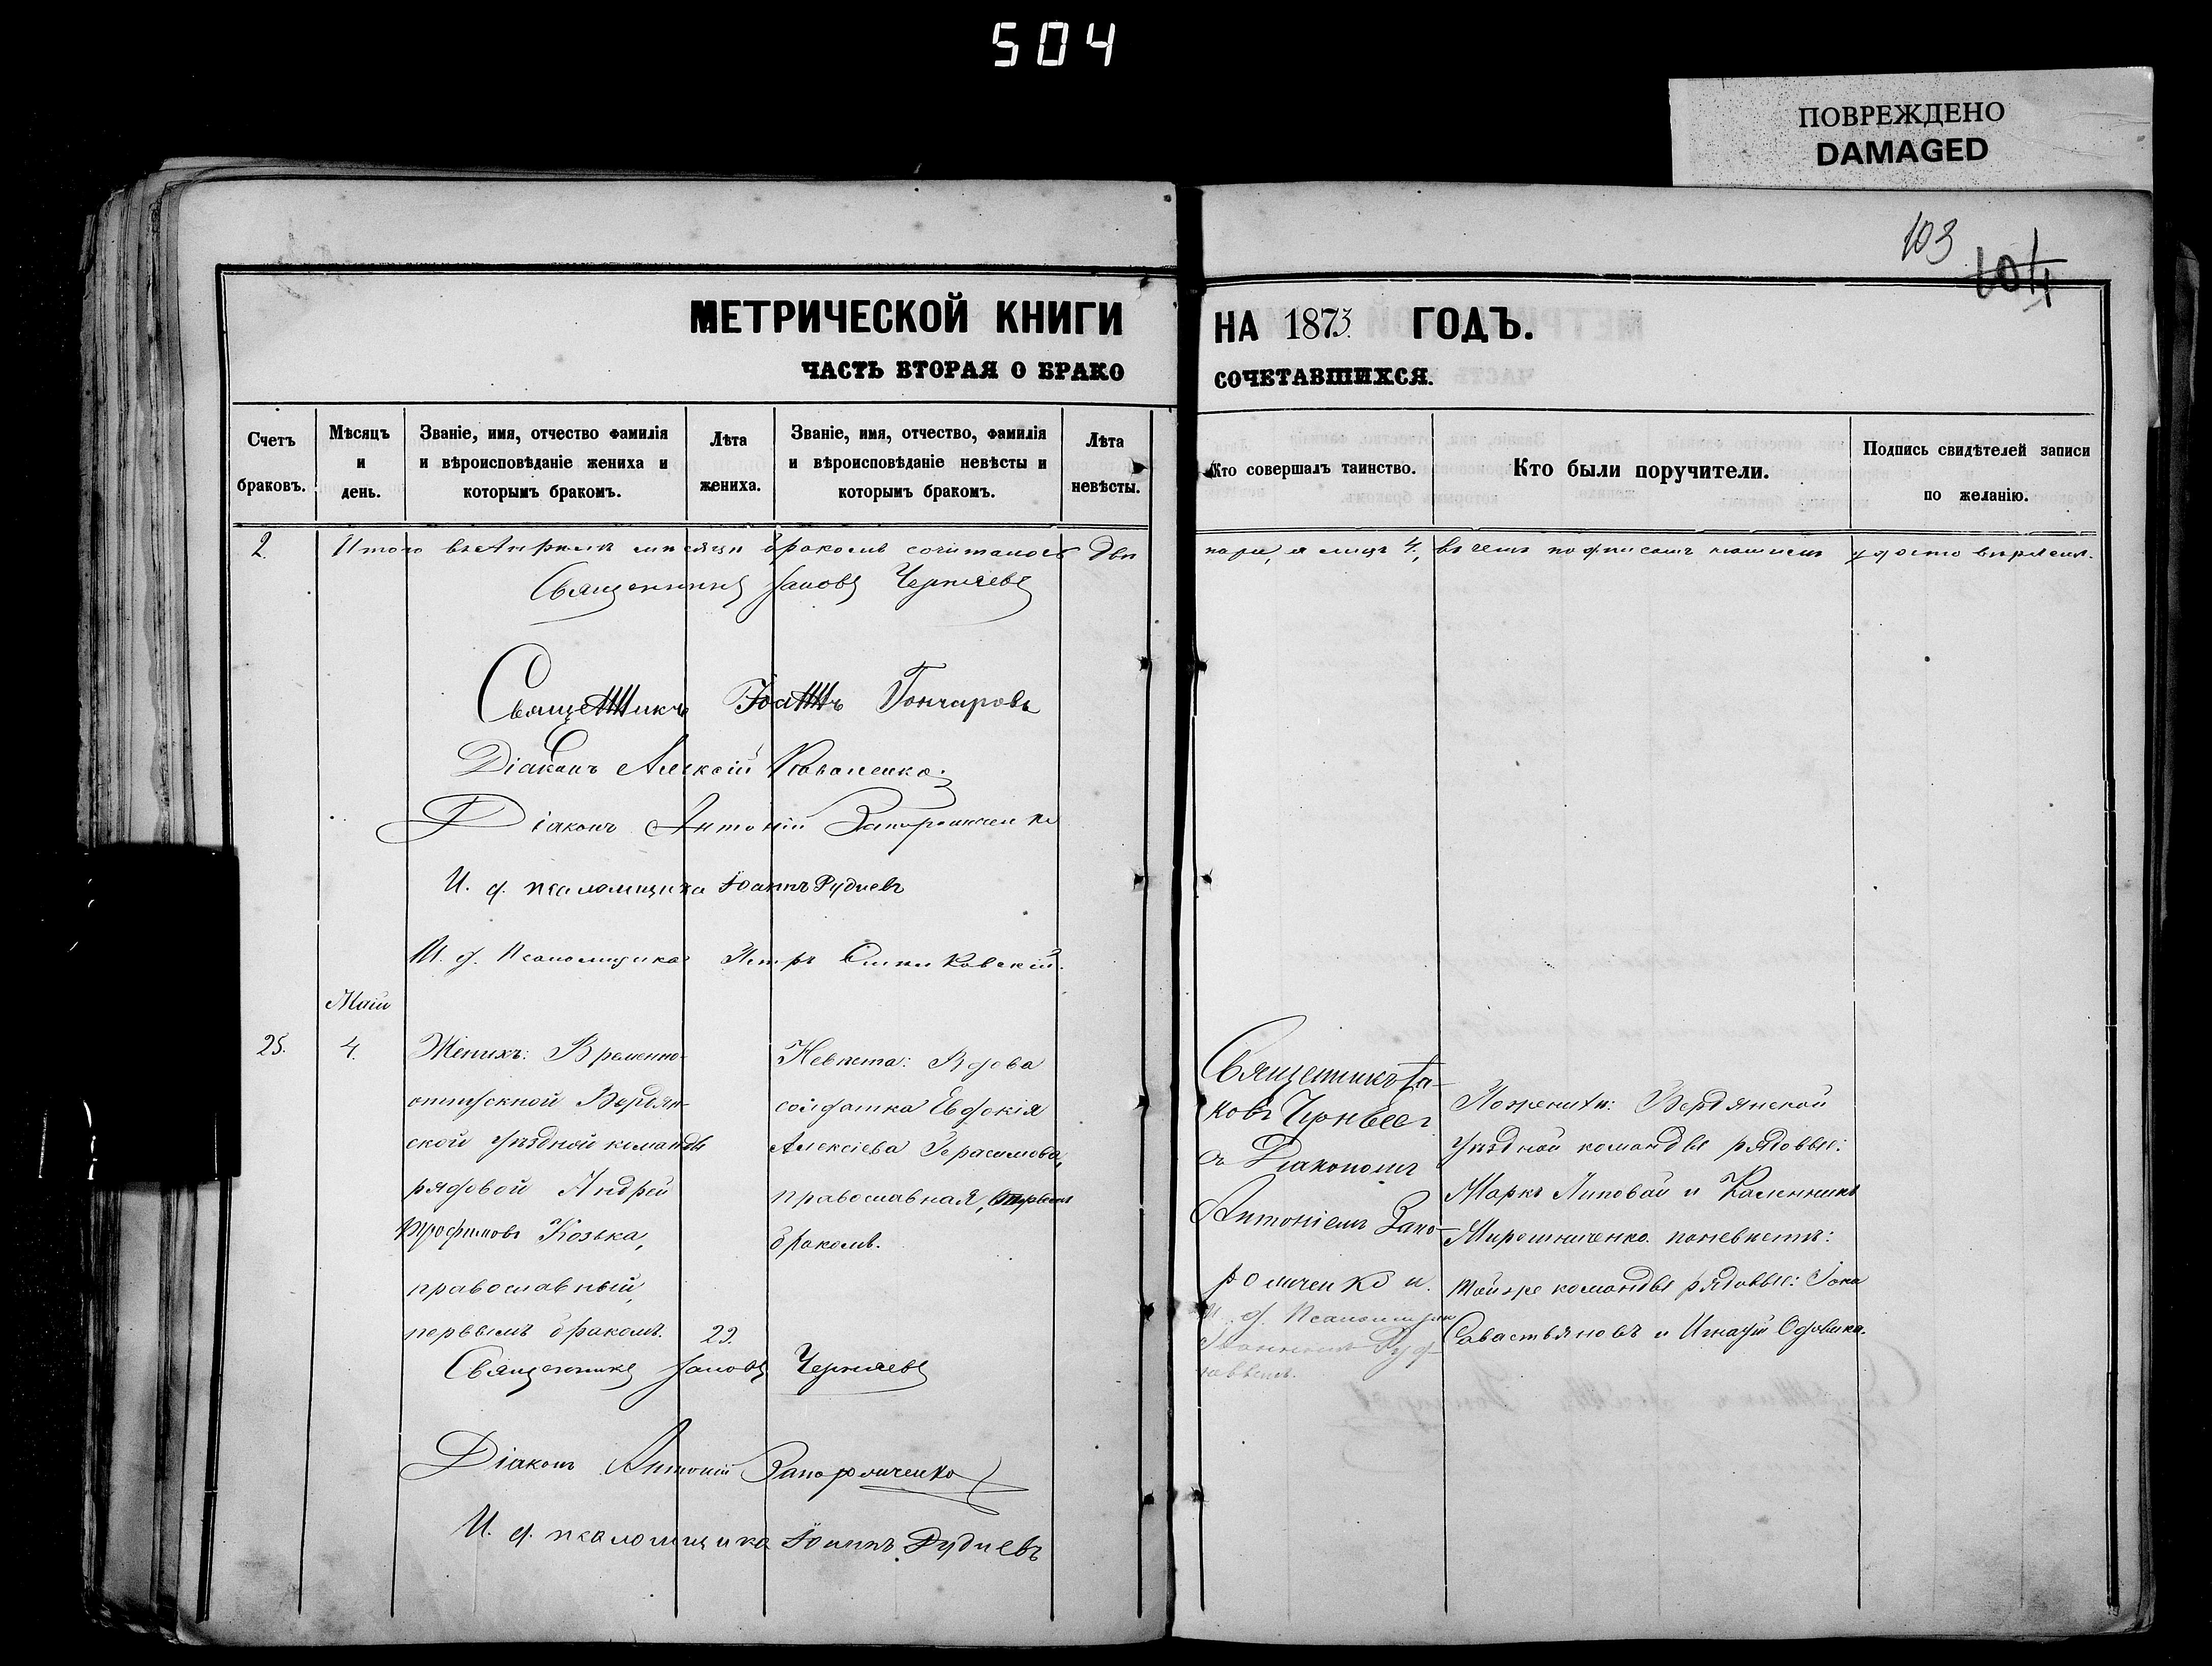 504
ПОВРЕЖДЕНО
DAMAGED
103
104
МЕТРИЧЕСКОЙ КНИГИ НА 1873 ГОДЪ.
ЧАСТЬ ВТОРАЯ О БРАКОСОЧЕТАВШИХСЯ.
Счетъ браковъ.
Мѣсяцъ и день.
Званіе, имя, отчество фамилія и вѣроисповѣданіе жениха и которымъ бракомъ.
Лѣта жениха.
Званіе, имя, отчество, фамилія и вѣроисповѣданіе невѣсты и которымъ бракомъ.
Лѣта невѣсты.
Кто совершалъ таинство.
Кто были поручители.
Подпись свидѣтелей записи по желанію.
2. Итого въ Апрѣлѣ мѣсяцѣ бракомъ сочиталось двѣ пары, а лицъ 4, въ чемъ подписомъ нашимъ удостовѣряемъ.
Священникъ Іаковъ Черняевъ
Священникъ Іоаннъ Гончаровъ
Діаконъ Алексій Коваленко
Діаконъ Антоній Запорожченко
И. д. псаломщика Іоаннъ Рудневъ
И. д. Псаломщика Петръ
Маій
25.
4.
Женихъ: Временно-
отпускной Бердян-
ской уѣздной команды
рядовой Андрей
Трофимовъ Козька,
православный,
первымъ бракомъ.
29.
Невѣста: Вдова
солдатка Евдокія
Алексіева Герасимова,
православная, вторымъ
бракомъ.
Священникъ Іа-
ковъ Черняевъ
съ Діакономъ
Антоніемъ Запо-
рожченко и
И. д. Псаломщика
Іоанномъ Руд-
невымъ.
По женихѣ: Бердянской
уѣздной команды рядовые:
Маркъ Липовай и Каленникъ
Мирошниченко. по невѣстѣ:
той же команды рядовые: Іона
Савастьяновъ и Игнатій
Священникъ Іаковъ Черняевъ
Діаконъ Антоній Запорожченко
И. д. псаломщика Іоаннъ Рудневъ